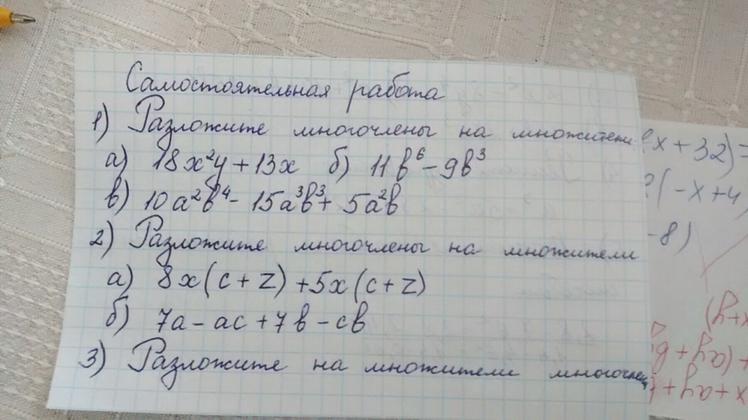 Самостоятельная работа
1) Разложите многочлены на множители
а) 18x²y + 13x б) 11b⁶ - 9b³
в) 10a²b⁴ - 15a³b³ + 5a²b
2) Разложите многочлены на множители
а) 8x(c + z) + 5x(c + z)
б) 7a - ac + 7b - cb
3) Разложите на множители многочлен
x + 32) =
(-x + 4)
-8)
x+y)
+ (ay + b
x + ay +